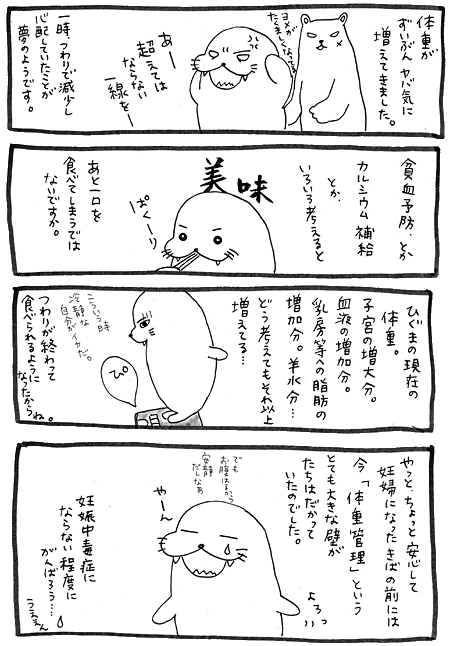 体重が
ずいぶんヤバ気に
増えてきました。
ヨメが
たくましくなってる
あー
超えては
ならない
一線をー
一時つわりで減少し
心配していたことが
夢のようです。
貧血予防、とか
カルシウム補給
とか、
いろいろ考えると
美味
ぱくーり
あと一口を
食べてしまうでは
ないですか。
ひぐまの現在の
体重。
子宮の増大分。
血液の増加分。
乳房等への脂肪の
増加分。羊水分…
どう考えてもそれ以上
増えてる…
こういう時
冷静な
自分がイヤだ。
ぴ
つわりが終わって
食べられるように
なったからね。
やっと、ちょっと安心して
妊婦になったきばの前には
今「体重管理」という
とても大きな壁が
たちはだかって
いたのでした。
よろっ
でも
お腹はるから
安静
だしなあ
やーん
妊娠中毒症に
ならない程度に
がんばろう…。
うええん